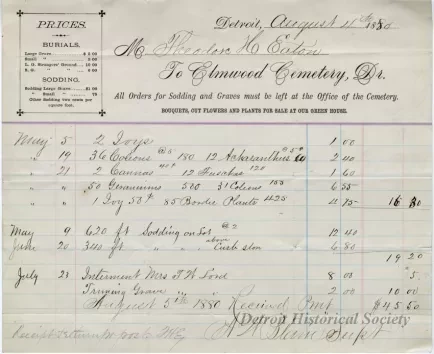 PRICES.
BURIALS.
Large Grave $8 00
Small " 5 00
L. O. Strangers' Ground, 10 00
S. G. " " 6 00
SODDING.
Sodding Large Grave, $1 00
" Small " 75
Other Sodding two cents per
square foot.
Detroit, August 4th 1880
M Theodore H Eaton
To Elmwood Cemetery, Dr.
All Orders for Sodding and Graves must be left at the Office of the Cemetery.
BOUQUETS, CUT FLOWERS AND PLANTS FOR SALE AT OUR GREEN HOUSE.
May 5 2 Ivys 1 00
" 19 36 Coleus @5 180 12 Acharanthus @5 60 2 40
" 21 2 Cannas 40 12 Fuschas 120 1 60
" " 50 Geraniums 500 31 Coleus 155 6 55
" " 1 Ivy 50 85 Border Plants 425 4 75 16 30
May 9 620 ft Sodding on Lot @2 12 40
June 20 340 ft " " above Curb stone 6 80
19 20
July 23 Interment Mrs T W Lord 8 00
Triming Grave 2 00 10 00
August 5th 1880 Received Pmt $45 50
Supt
Detroit Historical Society